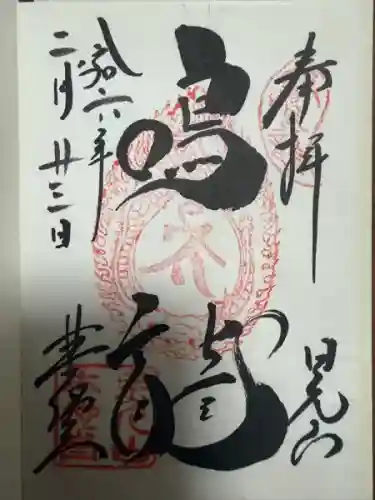 奉拝
日光山
鳴龍
令和六年
二月廿三日
薬師堂